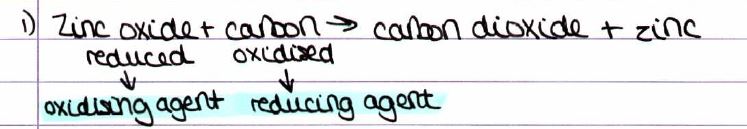 1) Zinc oxide + carbon → carbon dioxide + zinc
reduced oxidised
↓ ↓
oxidising agent reducing agent